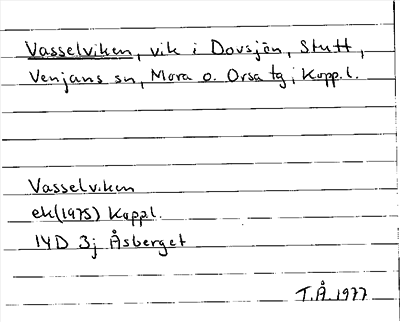 Vasselviken, vik i Dovsjön, Stutt,
Venjans sn, Mora o. Orsa tg, Kopp. l.
Vasselviken
ek (1975) Koppl.
14D 3j Åsberget
T.Å. 1977